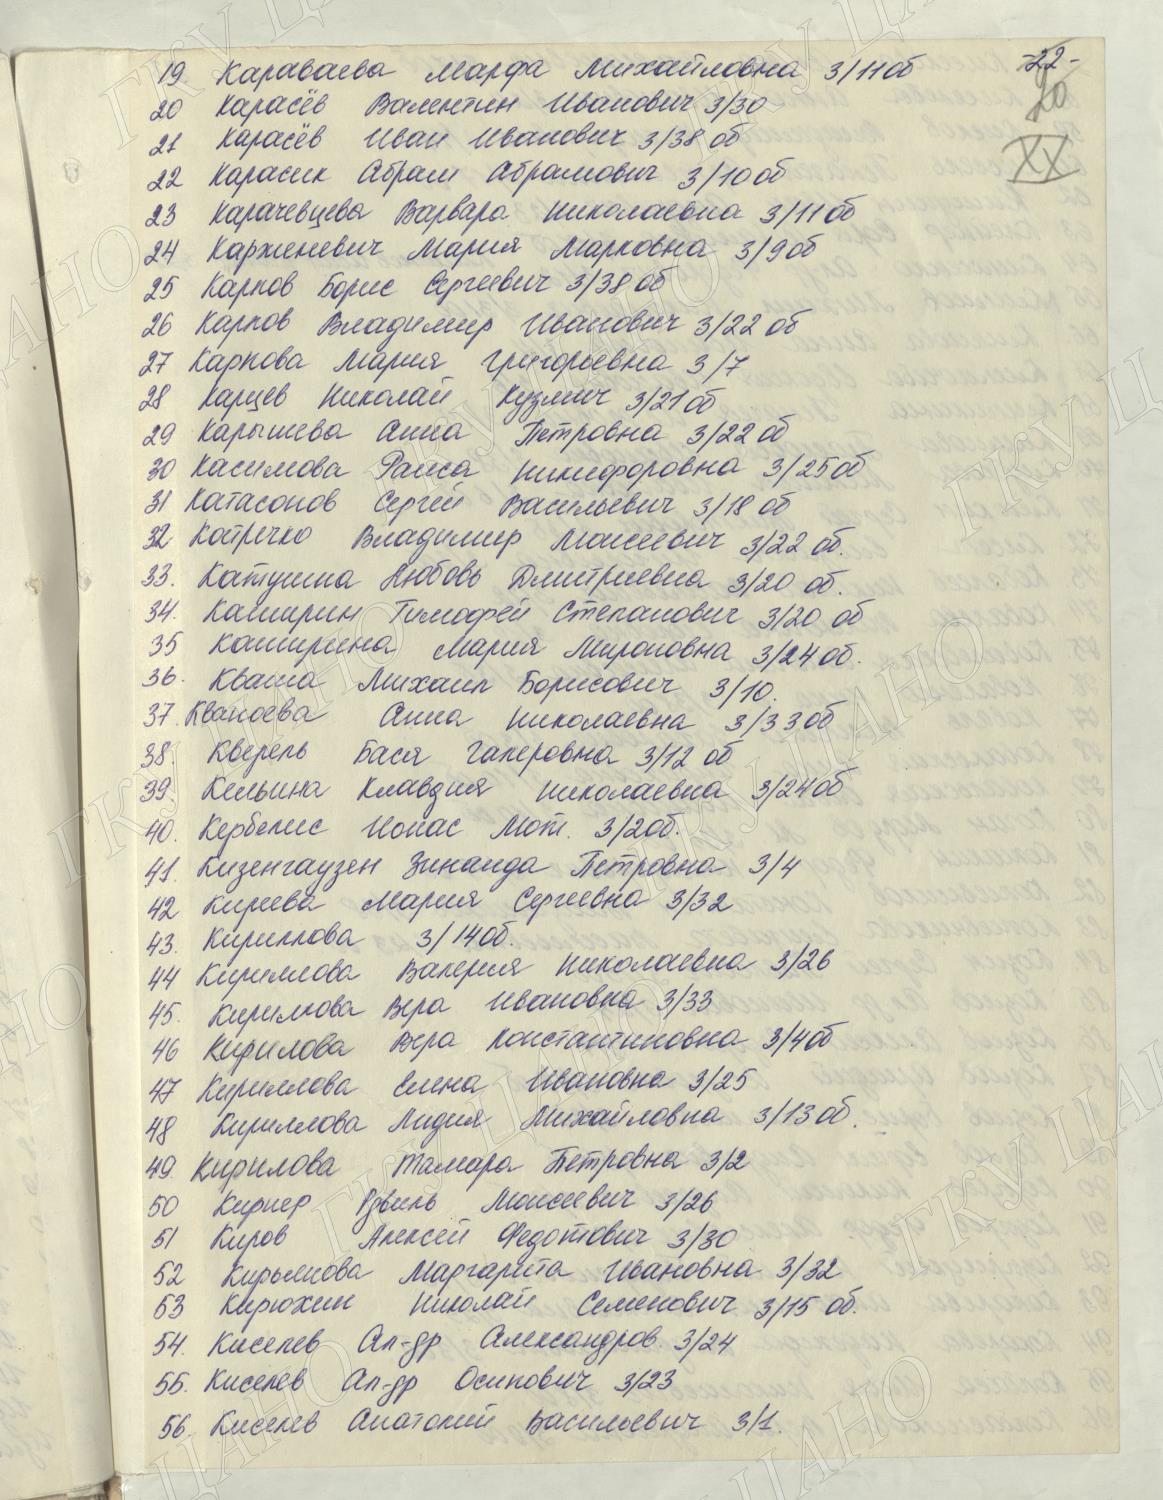 19. Караваева Марфа Михайловна 3/11об
-22-
20
XX
20 Карасёв Валентин Иванович 3/30
21 Карасёв Иван Иванович 3/38 об
22 Карасик Абрам Абрамович 3/10 об
23 Карачевцева Варвара Николаевна 3/11 об
24 Карженевич Мария Марковна 3/9 об
25 Карпов Борис Сергеевич 3/38 об
26 Карпов Владимир Иванович 3/22 об
27 Карпова Мария Григорьевна 3/7
28 Карцев Николай Кузмич 3/21 об
29 Карышева Анна Петровна 3/22 об
30 Касимова Раиса Никифоровна 3/25 об
31 Катасонов Сергей Васильевич 3/18 об
32 Катречко Владимир Моисеевич 3/22 об.
33. Катушина Любовь Дмитриевна 3/20 об.
34. Каширин Тимофей Степанович 3/20 об
35 Каширина Мария Мироновна 3/24 об.
36. Кваша Михаил Борисович 3/10.
37. Анна Николаевна 3/33 об
38. Кверель Бася Галеровна 3/12 об
39. Кельина Клавдия Николаевна 3/24 об
40. Кербелис Ионас Мот. 3/2об.
41. Кизенгаузен Зинаида Петровна 3/4
42 Киреева Мария Сергеевна 3/32
43. Кириллова 3/14об.
44 Кириллова Валерия Николаевна 3/26
45. Кириллова Вера Ивановна 3/33
46 Кирилова Вера Константиновна 3/4об
47 Кириллова Елена Ивановна 3/25
48 Кириллова Лидия Михайловна 3/13 об.
49. Кирилова Тамара Петровна 3/2
50 Кирнер Моисеевич 3/26
51 Киров Алексей Федотович 3/30
52 Кирьянова Маргарита Ивановна 3/32
53 Кирюхин Николай Семенович 3/15 об.
54. Киселев Ал-др Александров. 3/24
55. Киселев Ал-др Осипович 3/23
56. Киселев Анатолий Васильевич 3/1.
ГКУ ЦАНО